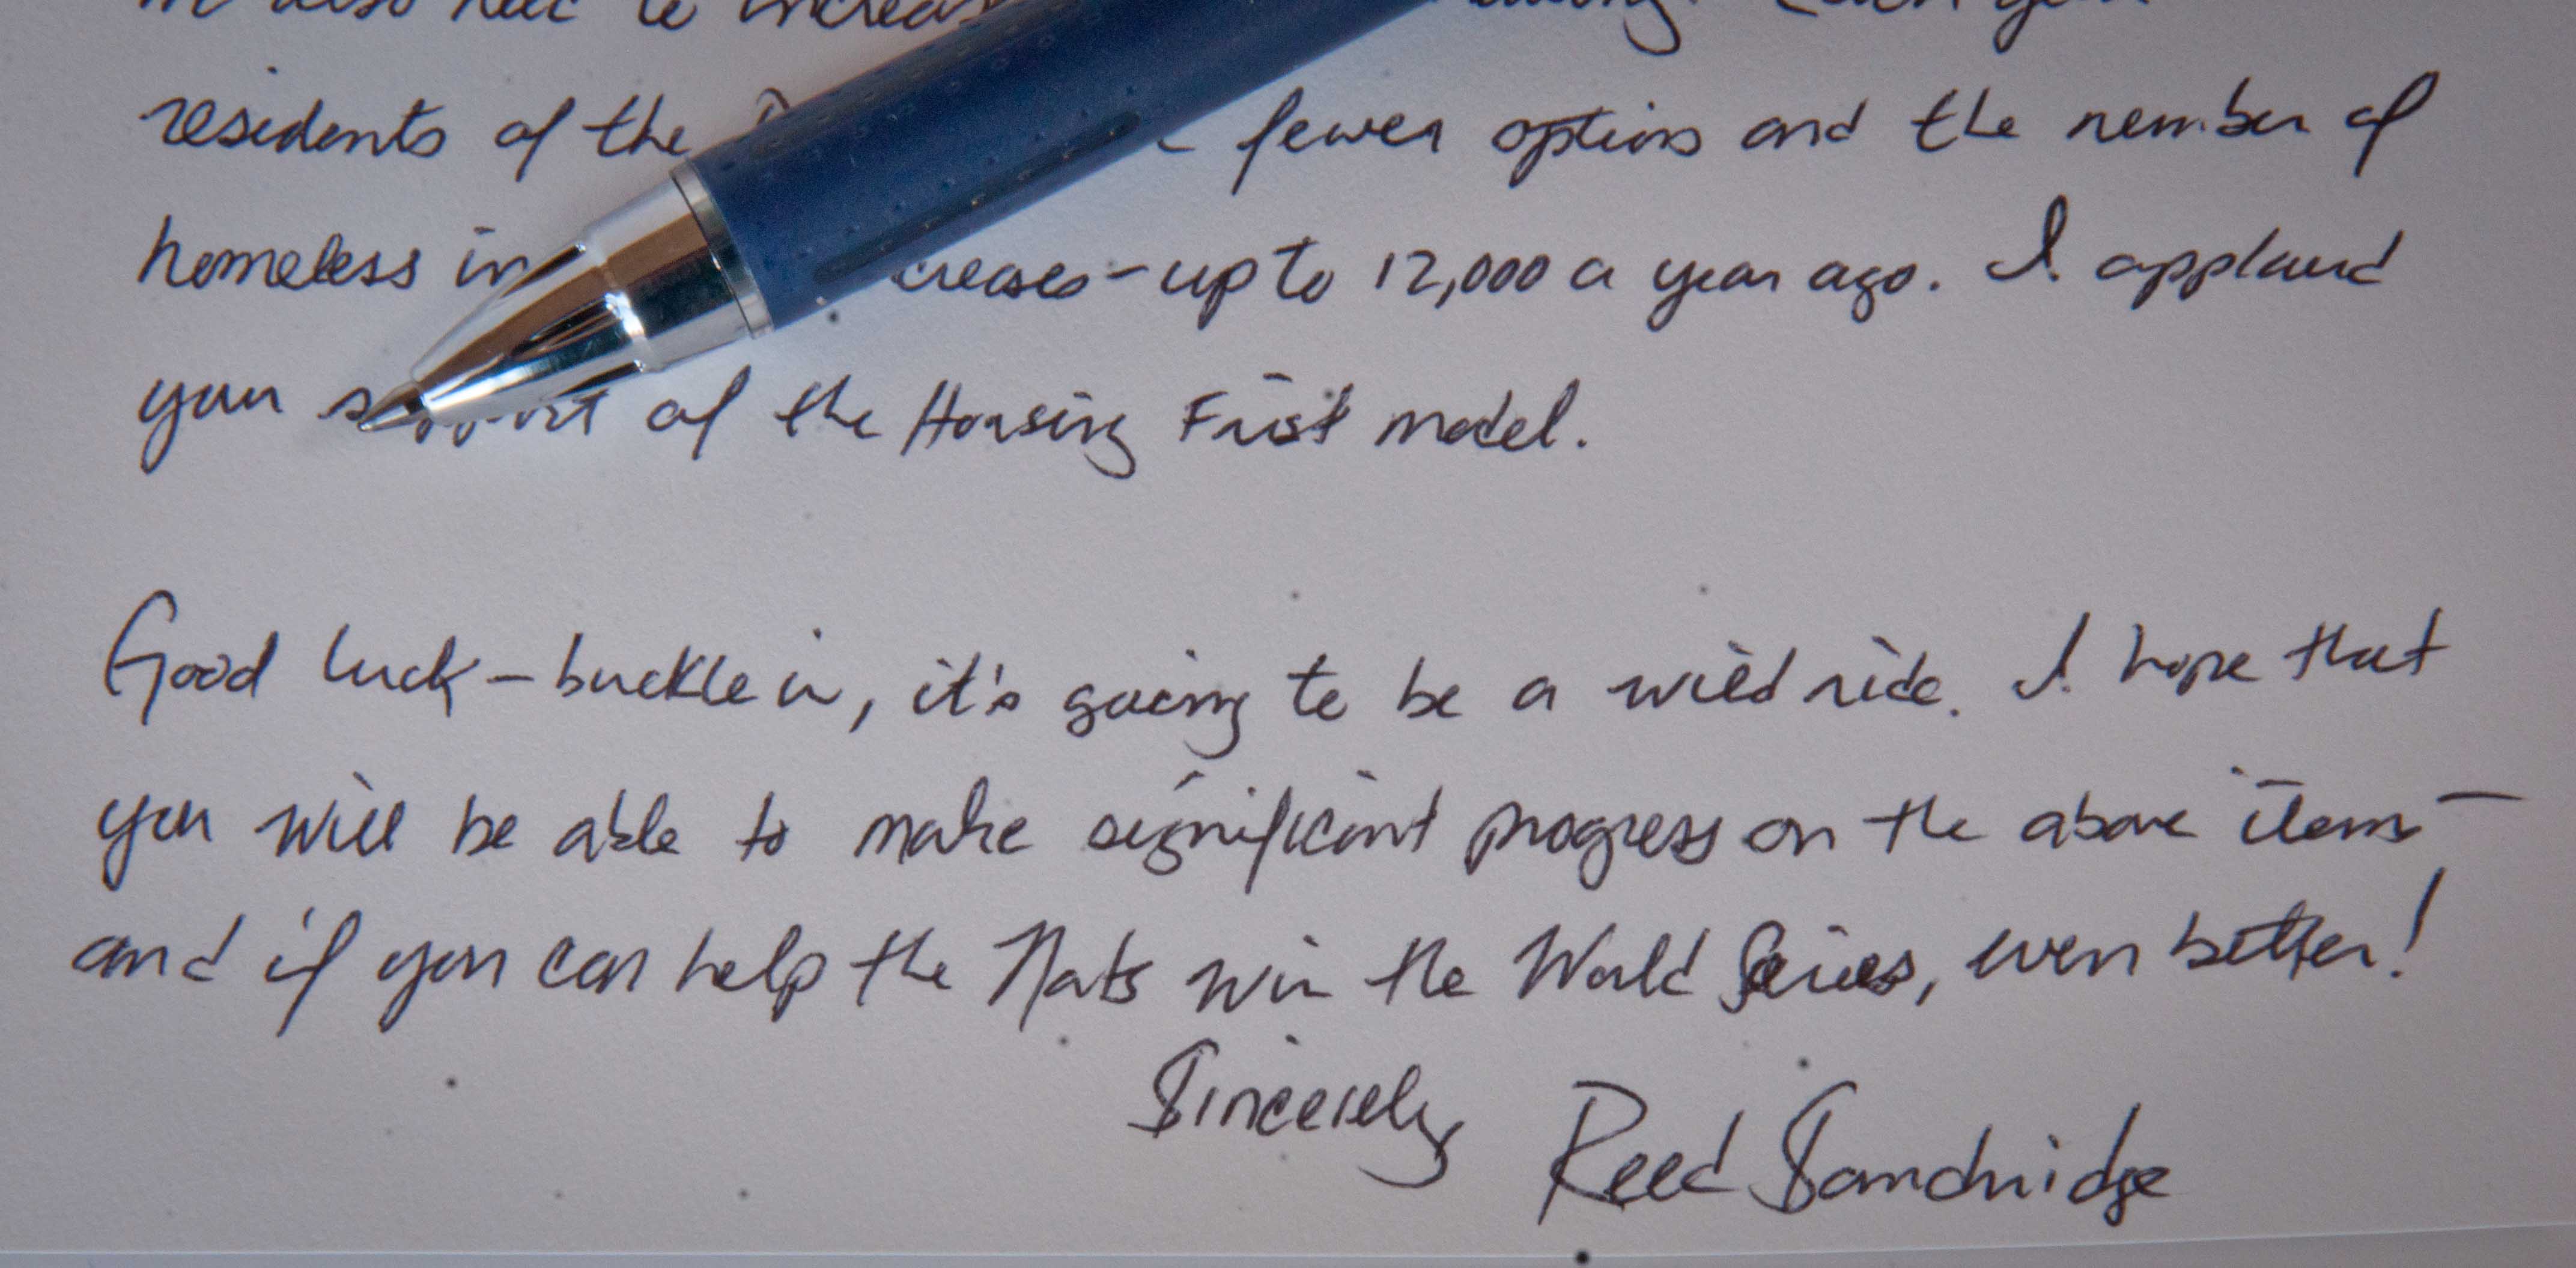 also need to increas
residents of the fewer options and the number of
homeless in creases - up to 12,000 a year ago. I applaud
your support of the Housing First model.
Good luck - buckle in, it's going to be a wild ride. I hope that
you will be able to make significant progress on the above items -
and if you can help the Nats win the World Series, even better!
Sincerely Reed Sandridge